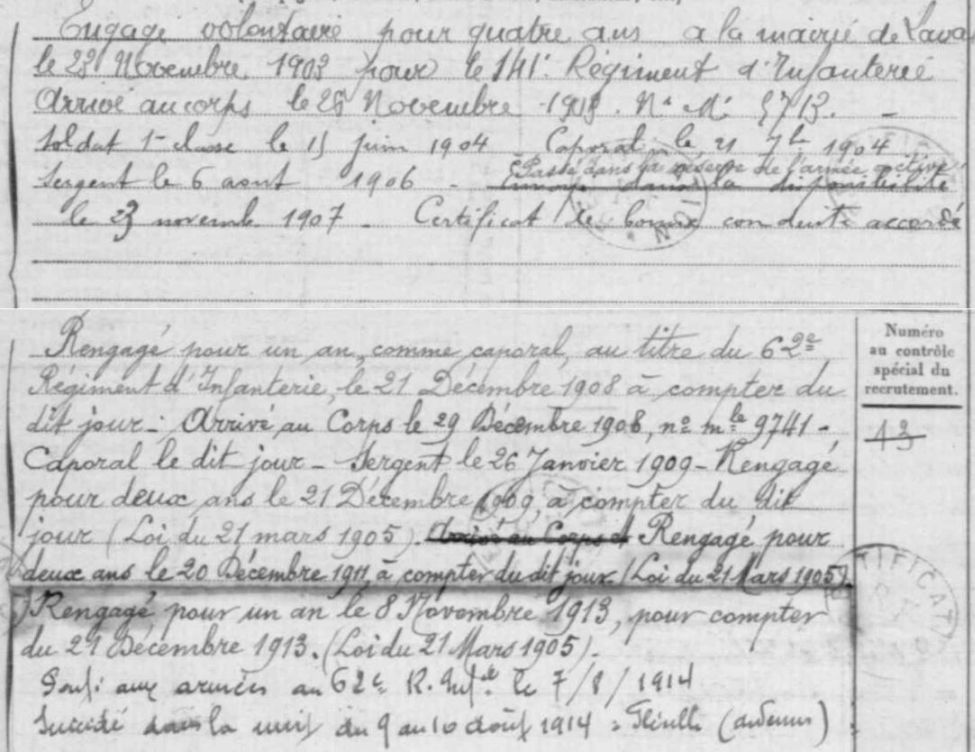 Engagé volontaire pour quatre ans a la mairie de Laval
le 23 Novembre 1903 pour le 141e Régiment d'Infanterie
Arrivé au corps le 28 Novembre 1903. No Mle 5713. –
Soldat 1e classe le 15 juin 1904 Caporal le 21 7bre 1904
Passé dans la réserve de l'armée active
Sergent le 6 aout 1906 - dans la disponibilité
le 23 novemb. 1907 – Certificat de bonne conduite accordé
Rengagé pour un an, comme caporal, au titre du 62e
Régiment d'Infanterie, le 21 Décembre 1908 à compter du
dit jour – Arrivé au Corps le 29 Décembre 1908, no mle 9741 –
Caporal le dit jour – Sergent le 26 Janvier 1909 – Rengagé
pour deux ans le 21 Décembre 1909, à compter du dit
jour (Loi du 21 mars 1905). Arrivé au Corps Rengagé pour
deux ans le 20 Décembre 1911, à compter du dit jour (Loi du 21 Mars 1905).
Rengagé pour un an le 8 Novembre 1913, pour compter
du 21 Décembre 1913. (Loi du 21 Mars 1905).
aux armées au 62e R. Infrie le 7/8/1914
Suicidé dans la nuit du 9 au 10 août 1914 à (ardennes)
Numéro
au contrôle
spécial du
recrutement.
43